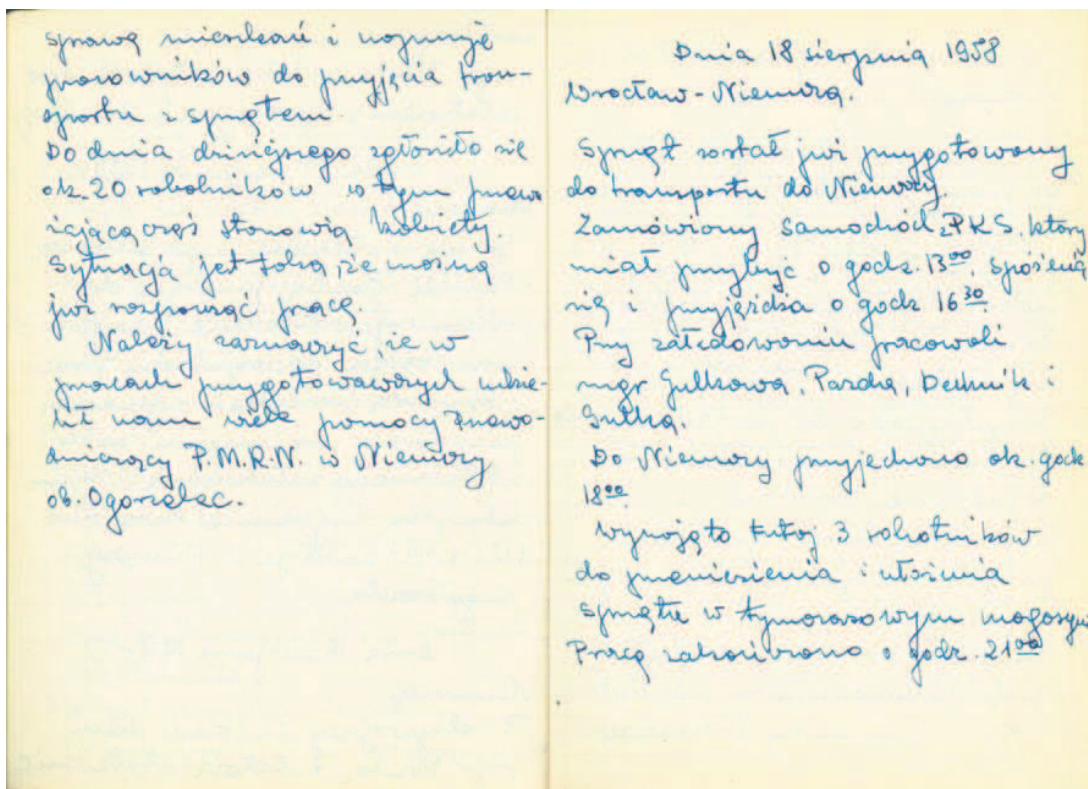 sprawę mieszkań i wynajmuję
pracowników do przyjęcia tran-
sportu z sprzętem
Do dnia dzisiejszego zgłosiło się
ok. 20 robotników w tym przewa
żającą częś stanowią kobiety.
Sytuacja jest taka, że można
już rozpocząć pracę.
Należy zaznaczyć, że w
pracach przygotowawczych udzie-
lił nam wiele pomocy Przewo-
dniczący P.M.R.N. w Niemczy
ob. Ogorzelec.
Dnia 18 sierpnia 1958
Wrocław-Niemcza.
Sprzęt został już przygotowany
do transportu do Niemczy.
Zamówiony samochód z PKS. który
miał przybyć o godz. 13⁰⁰, spóźnia
się i przyjeżdża o godz 16³⁰.
Przy załadowaniu pracowali
mgr Gulkowa, Pazda, Dechnik i
Gulka.
Do Niemczy przyjechano ok. godz
18⁰⁰
Wynajęto tutaj 3 robotników
do przeniesienia i ułożenia
sprzętu w tymczasowym magazynie
Pracę zakończono o godz. 21⁰⁰